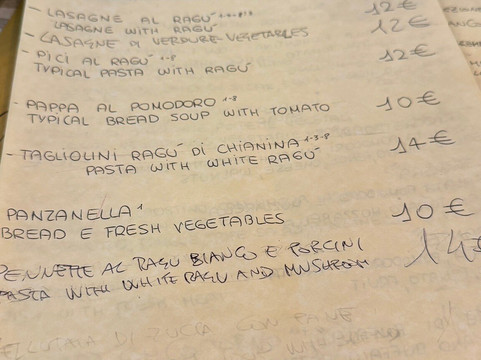 - LASAGNE AL RAGÚ 12€
LASAGNE WITH RAGÚ
- LASAGNE DI VERDURE-VEGETABLES 12€
- PICI AL RAGÚ 1-8 12€
TYPICAL PASTA WITH RAGÚ
- PAPPA AL POMODORO 1-8 10€
TYPICAL BREAD SOUP WITH TOMATO
- TAGLIOLINI RAGÚ DI CHIANINA 1-3-8 14€
PASTA WITH WHITE RAGÚ
PANZANELLA 1 10€
BREAD E FRESH VEGETABLES
PENNETTE AL RAGU BIANCO E PORCINI 14€
PASTA WITH WHITE RAGU AND MUSHROOM
DI ZUCCA CON PANE